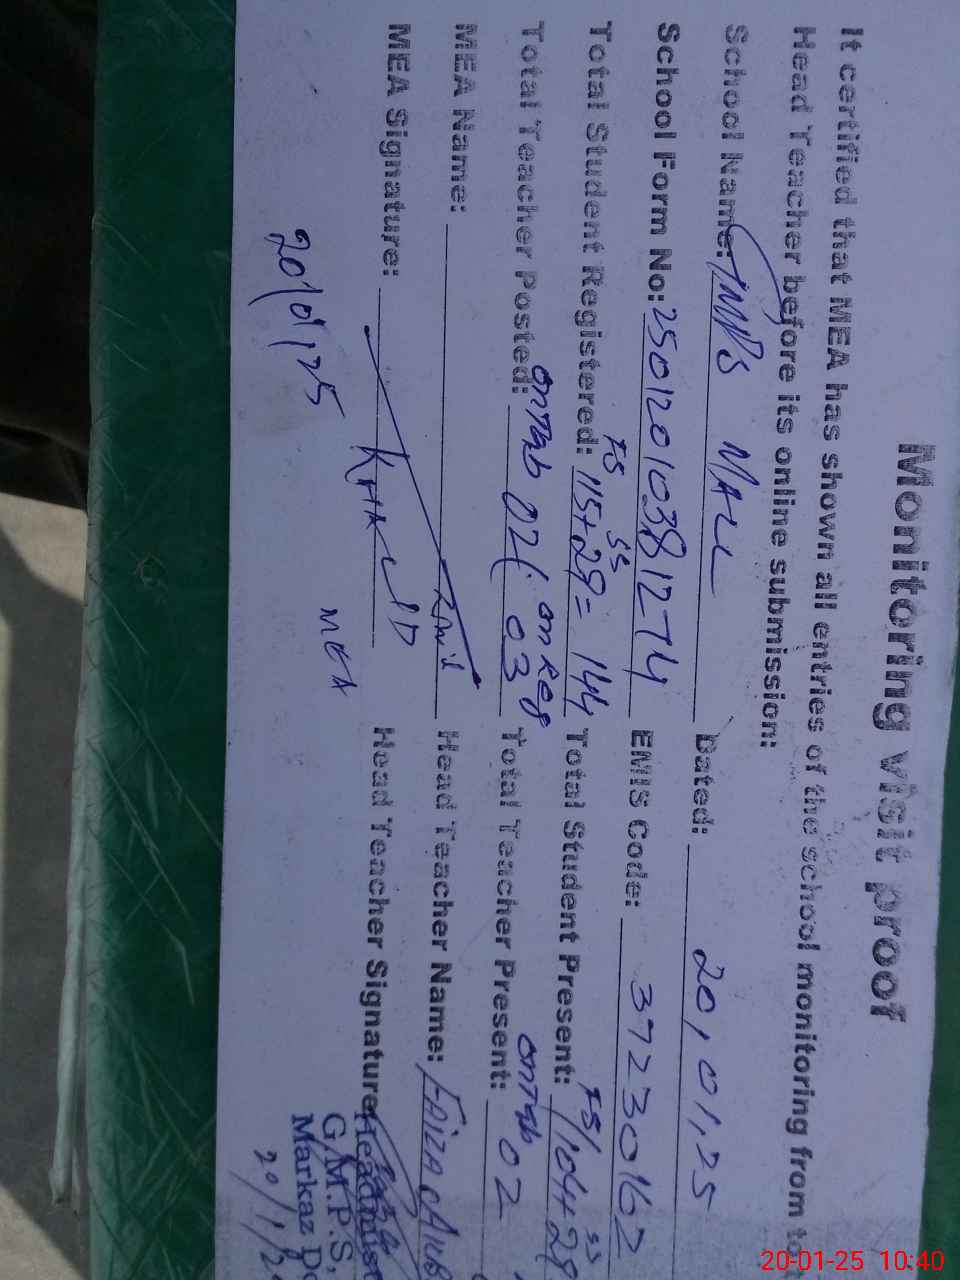 Monitoring visit proof
It certified that MEA has shown all entries of the school monitoring from to
Head Teacher before its online submission:
School Name: GMPS Dated: 20,01,25
School Form No: 25012010381274 EMIS Code: 37230162
FS SS FS SS
Total Student Registered: 115+29= 144 Total Student Present: 104+28
onTab on Reg onTab
Total Teacher Posted: 02( 03 Total Teacher Present: 02
MEA Name: Head Teacher Name: Faiza
MEA Signature: Head Teacher Signature
MEA
G.M.P.S,
Markaz
20/01/25
20/1/2
20-01-25 10:40